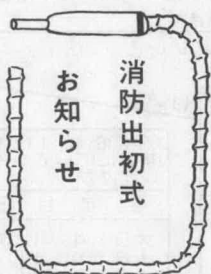 消防出初式
お知らせ